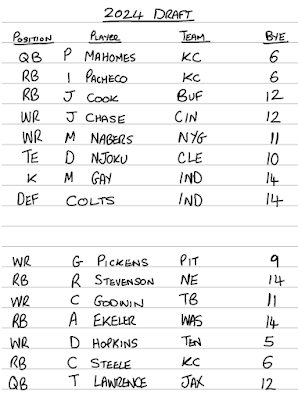 2024 DRAFT
POSITION PLAYER TEAM BYE
QB P MAHOMES KC 6
RB I PACHECO KC 6
RB J COOK BUF 12
WR J CHASE CIN 12
WR M NABERS NYG 11
TE D NJOKU CLE 10
K M GAY IND 14
DEF COLTS IND 14
WR G PICKENS PIT 9
RB R STEVENSON NE 14
WR C GODWIN TB 11
RB A EKELER WAS 14
WR D HOPKINS TEN 5
RB C STEELE KC 6
QB T LAWRENCE JAX 12